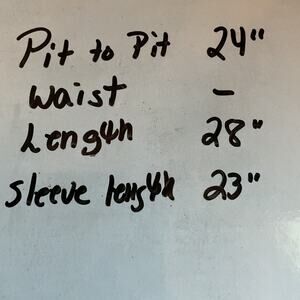 Pit to Pit 24"
Waist -
Length 28"
Sleeve length 23"